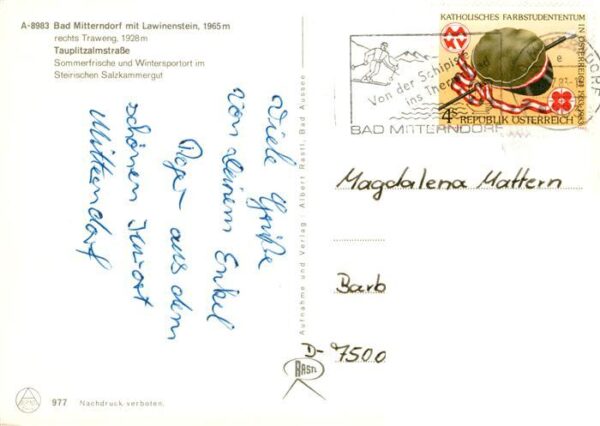 A-8983 Bad Mitterndorf mit Lawinenstein, 1965 m
rechts Traweng, 1928 m
Tauplitzalmstraße
Sommerfrische und Wintersportort im
Steirischen Salzkammergut
Viele Grüße
von deinem Enkel
aus dem
schönen Kurort
Mitterndorf
Aufnahme und Verlag: Albert Rastl, Bad Aussee
RASTL
977 Nachdruck verboten.
KATHOLISCHES FARBSTUDENTENTUM
IN ÖSTERREICH 1933-1983
MKV
4 S
REPUBLIK ÖSTERREICH
Von der Schipiste
ins
BAD MITTERNDORF
Magdalena Mattern
Barb
D-7500